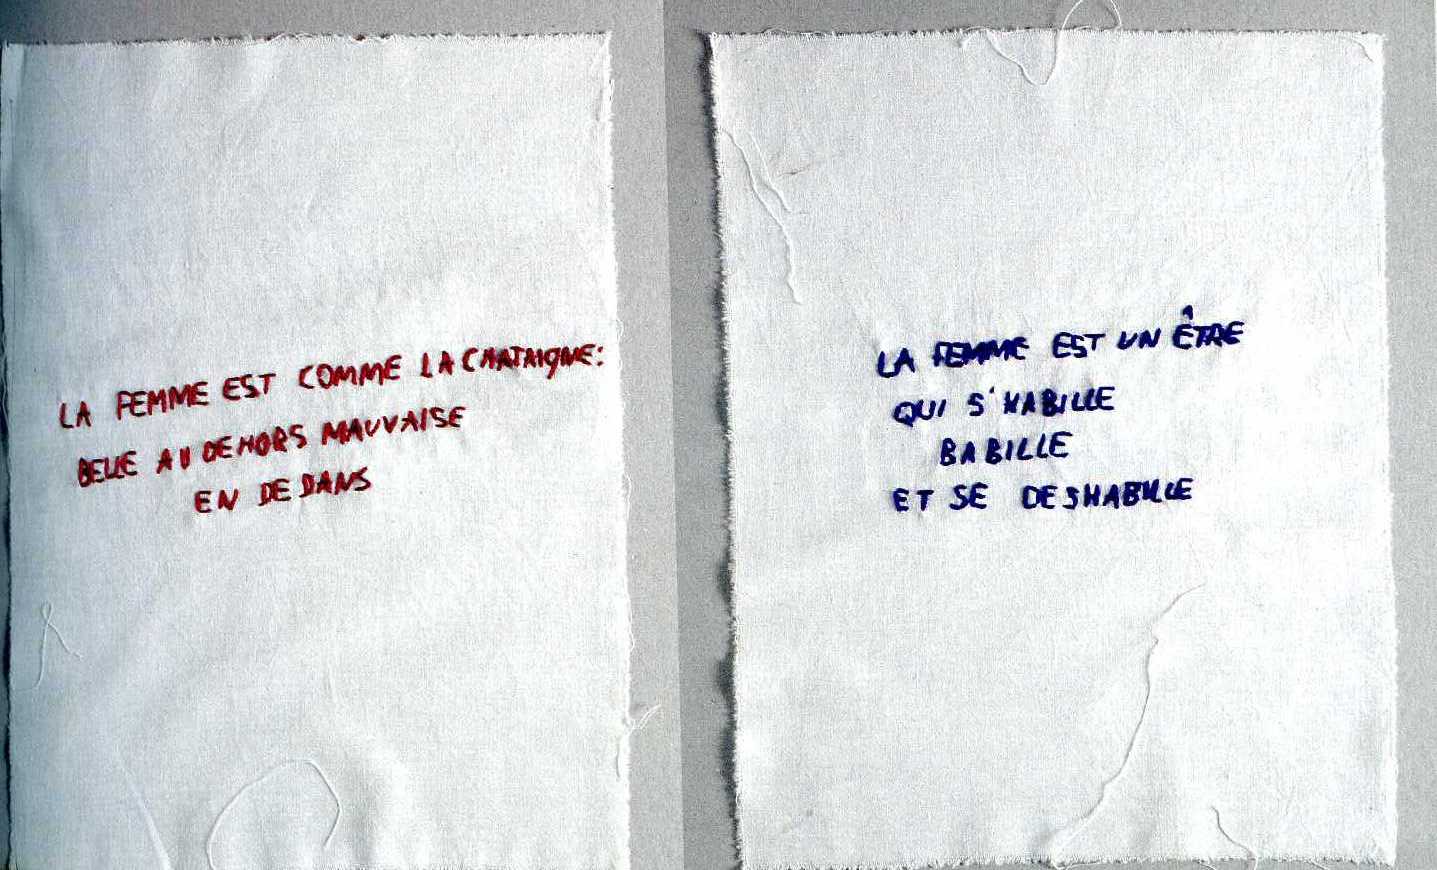 LA FEMME EST COMME LA CHATAIGNE:
BELLE AU DEHORS MAUVAISE
EN DEDANS
LA FEMME EST UN ÊTRE
QUI S'HABILLE
BABILLE
ET SE DESHABILLE